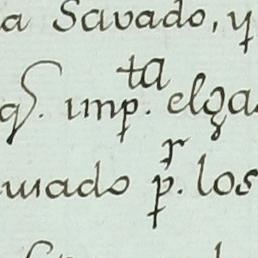 a Savado, y
q.ᵉ imp.ᵗᵃ elga
uiado p.ʳ los